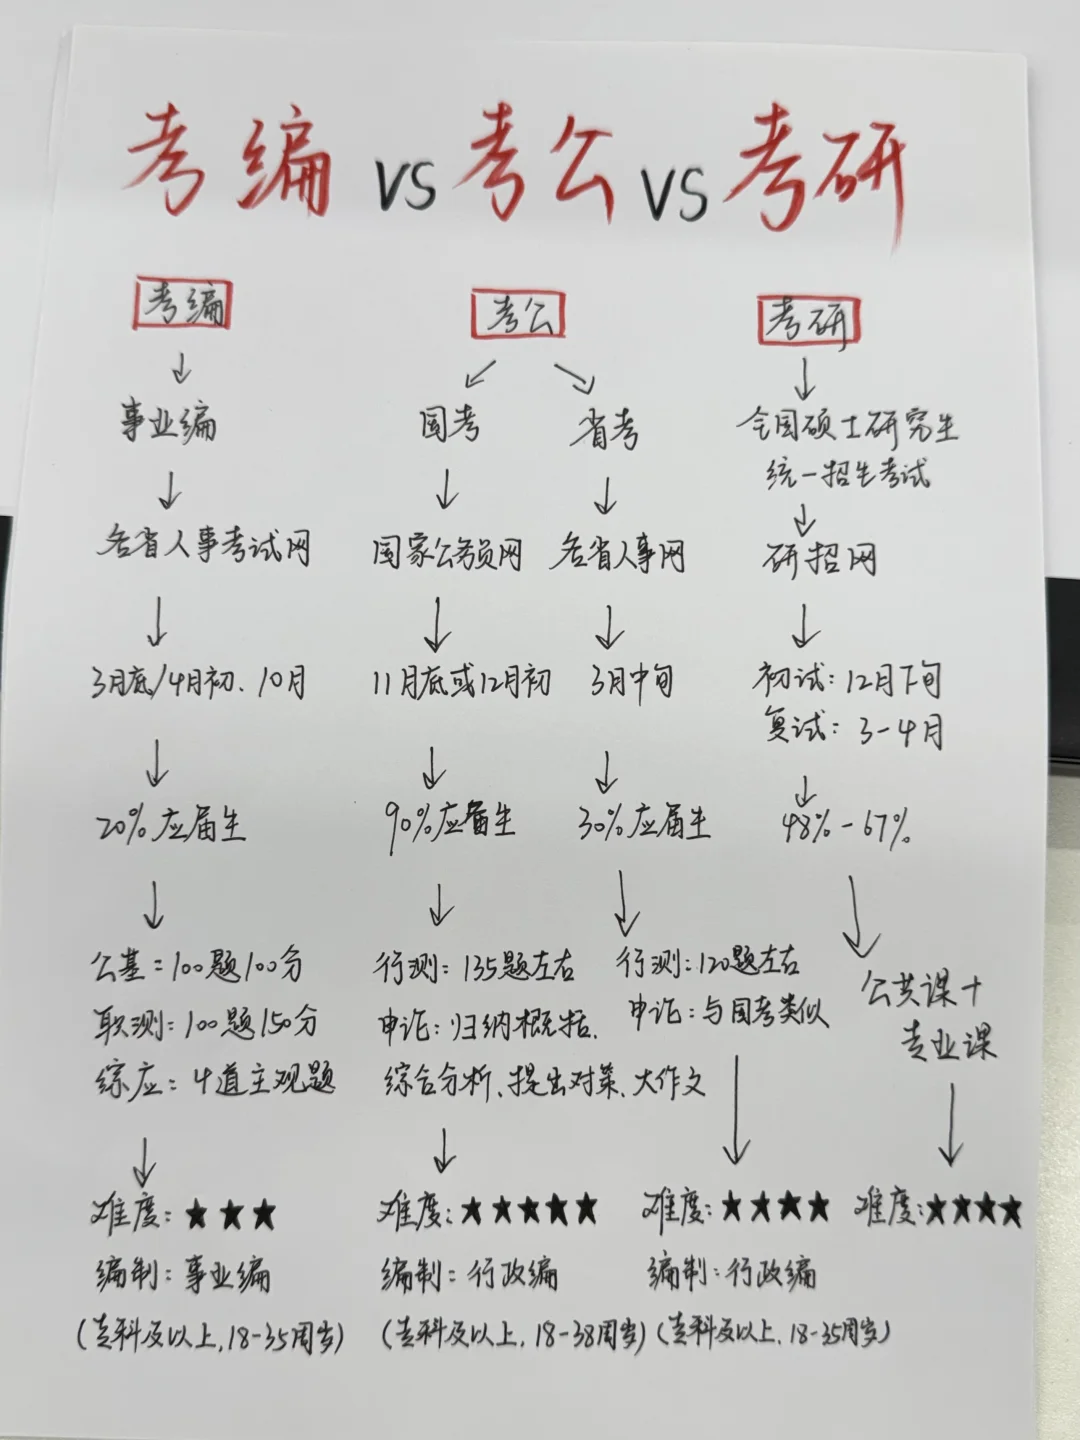 考编 VS 考公 VS 考研
考编 考公 考研
事业编 国考 省考 全国硕士研究生
统一招生考试
各省人事考试网 国家公务员网 各省人事网 研招网
3月底/4月初、10月 11月底或12月初 3月中旬 初试:12月下旬
复试:3-4月
20%应届生 90%应届生 30%应届生 48%-67%
公基:100题100分 行测:135题左右 行测:120题左右 公共课+
职测:100题150分 申论:归纳概括、 申论:与国考类似 专业课
综应:4道主观题 综合分析、提出对策、大作文
难度:★★★ 难度:★★★★★ 难度:★★★★ 难度:★★★★
编制:事业编 编制:行政编 编制:行政编
(专科及以上,18-35周岁) (专科及以上,18-38周岁) (专科及以上,18-35周岁)